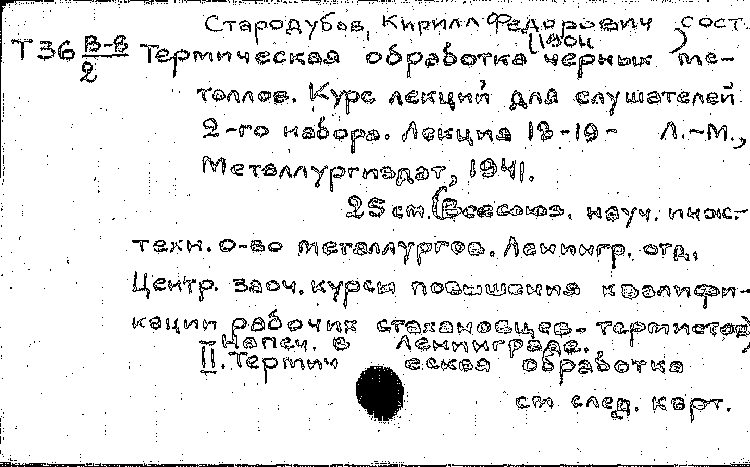 Стародубов, Кирилл Федорович сост.
(1904 )
Т 36 В-8/2 Термическая обработка черных ме-
таллов. Курс лекций для слушателей
2-го набора. Лекция 18-19- Л.-М.,
Металлургиздат, 1941.
25 см. (Всесоюз. науч. инж.-
техн. о-во металлургов. Ленингр. отд.
Центр. заоч. курсы повышения квалифи-
кации рабочих стахановцев-термистов)
Напеч. в Ленинграде.
II. Термич еская обработка
см след. карт.